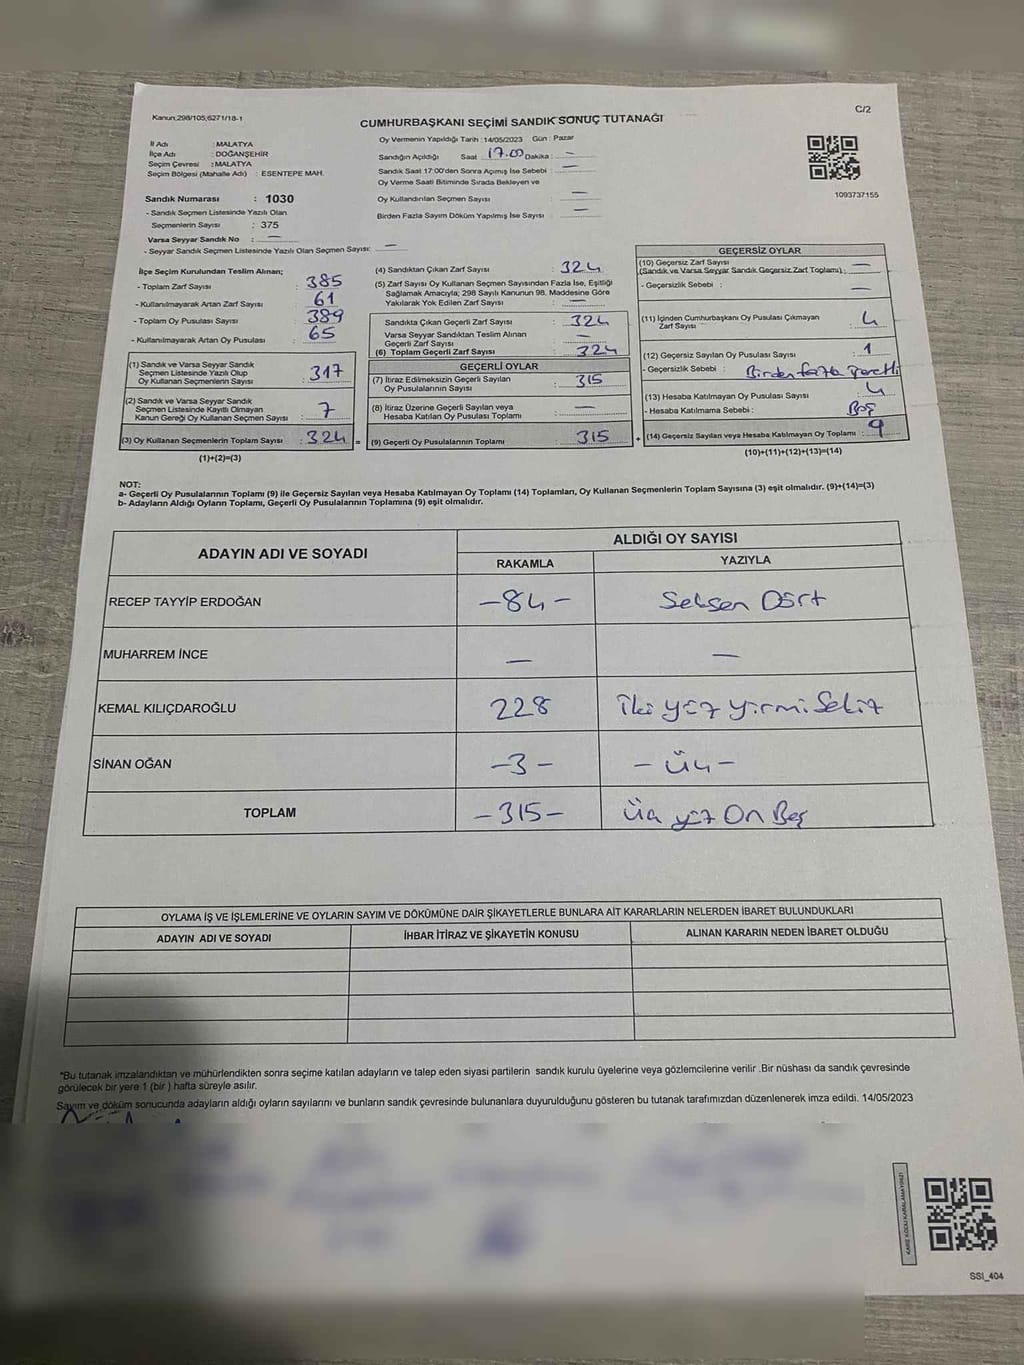 Kanun;298/105;6271/18-1
C/2
CUMHURBAŞKANI SEÇİMİ SANDIK SONUÇ TUTANAĞI
İl Adı : MALATYA
İlçe Adı : DOĞANŞEHİR
Seçim Çevresi : MALATYA
Seçim Bölgesi (Mahalle Adı) : ESENTEPE MAH.
Oy Vermenin Yapıldığı Tarih :14/05/2023 Gün : Pazar
Sandığın Açıldığı Saat 17.00 Dakika : —
Sandık Saat 17:00'den Sonra Açımış İse Sebebi : —
Oy Verme Saati Bitiminde Sırada Bekleyen ve
Oy Kullandırılan Seçmen Sayısı : —
Birden Fazla Sayım Döküm Yapılmış İse Sayısı : —
1093737155
Sandık Numarası : 1030
- Sandık Seçmen Listesinde Yazılı Olan
Seçmenlerin Sayısı : 375
Varsa Seyyar Sandık No : —
- Seyyar Sandık Seçmen Listesinde Yazılı Olan Seçmen Sayısı: —
İlçe Seçim Kurulundan Teslim Alınan;
- Toplam Zarf Sayısı : 385
- Kullanılmayarak Artan Zarf Sayısı : 61
- Toplam Oy Pusulası Sayısı : 389
- Kullanılmayarak Artan Oy Pusulası : 65
(1) Sandık ve Varsa Seyyar Sandık
Seçmen Listesinde Yazılı Olup
Oy Kullanan Seçmenlerin Sayısı : 317
(2) Sandık ve Varsa Seyyar Sandık
Seçmen Listesinde Kayıtlı Olmayan
Kanun Gereği Oy Kullanan Seçmen Sayısı : 7
(3) Oy Kullanan Seçmenlerin Toplam Sayısı : 324 =
(1)+(2)=(3)
(4) Sandıktan Çıkan Zarf Sayısı : 324
(5) Zarf Sayısı Oy Kullanan Seçmen Sayısından Fazla İse, Eşitliği
Sağlamak Amacıyla; 298 Sayılı Kanunun 98. Maddesine Göre
Yakılarak Yok Edilen Zarf Sayısı : —
Sandıkta Çıkan Geçerli Zarf Sayısı : 324
Varsa Seyyar Sandıktan Teslim Alınan
Geçerli Zarf Sayısı : —
(6) Toplam Geçerli Zarf Sayısı : 324
GEÇERLİ OYLAR
(7) İtiraz Edilmeksizin Geçerli Sayılan
Oy Pusulalarının Sayısı : 315
(8) İtiraz Üzerine Geçerli Sayılan veya
Hesaba Katılan Oy Pusulası Toplamı : —
(9) Geçerli Oy Pusulalarının Toplamı : 315 +
GEÇERSİZ OYLAR
(10) Geçersiz Zarf Sayısı
(Sandık ve Varsa Seyyar Sandık Geçersiz Zarf Toplamı) : —
- Geçersizlik Sebebi : —
(11) İçinden Cumhurbaşkanı Oy Pusulası Çıkmayan
Zarf Sayısı : 4
(12) Geçersiz Sayılan Oy Pusulası Sayısı : 1
- Geçersizlik Sebebi : Birden fazla işaretli
(13) Hesaba Katılmayan Oy Pusulası Sayısı : 4
- Hesaba Katılmama Sebebi : Boş
(14) Geçersiz Sayılan veya Hesaba Katılmayan Oy Toplamı : 9
(10)+(11)+(12)+(13)=(14)
NOT:
a- Geçerli Oy Pusulalarının Toplamı (9) ile Geçersiz Sayılan veya Hesaba Katılmayan Oy Toplamı (14) Toplamları, Oy Kullanan Seçmenlerin Toplam Sayısına (3) eşit olmalıdır. (9)+(14)=(3)
b- Adayların Aldığı Oyların Toplamı, Geçerli Oy Pusulalarının Toplamına (9) eşit olmalıdır.
ADAYIN ADI VE SOYADI
ALDIĞI OY SAYISI
RAKAMLA YAZIYLA
RECEP TAYYİP ERDOĞAN -84- Seksen Dört
MUHARREM İNCE — —
KEMAL KILIÇDAROĞLU 228 İki yüz yirmi Sekiz
SİNAN OĞAN -3- - Üç -
TOPLAM -315- Üç yüz On Beş
OYLAMA İŞ VE İŞLEMLERİNE VE OYLARIN SAYIM VE DÖKÜMÜNE DAİR ŞİKAYETLERLE BUNLARA AİT KARARLARIN NELERDEN İBARET BULUNDUKLARI
ADAYIN ADI VE SOYADI İHBAR İTİRAZ VE ŞİKAYETİN KONUSU ALINAN KARARIN NEDEN İBARET OLDUĞU
*Bu tutanak imzalandıktan ve mühürlendikten sonra seçime katılan adayların ve talep eden siyasi partilerin sandık kurulu üyelerine veya gözlemcilerine verilir .Bir nüshası da sandık çevresinde
görülecek bir yere 1 (bir ) hafta süreyle asılır.
Sayım ve döküm sonucunda adayların aldığı oyların sayılarını ve bunların sandık çevresinde bulunanlara duyurulduğunu gösteren bu tutanak tarafımızdan düzenlenerek imza edildi. 14/05/2023
KARE KODU KARALAMAYINIZ!
SSI_404